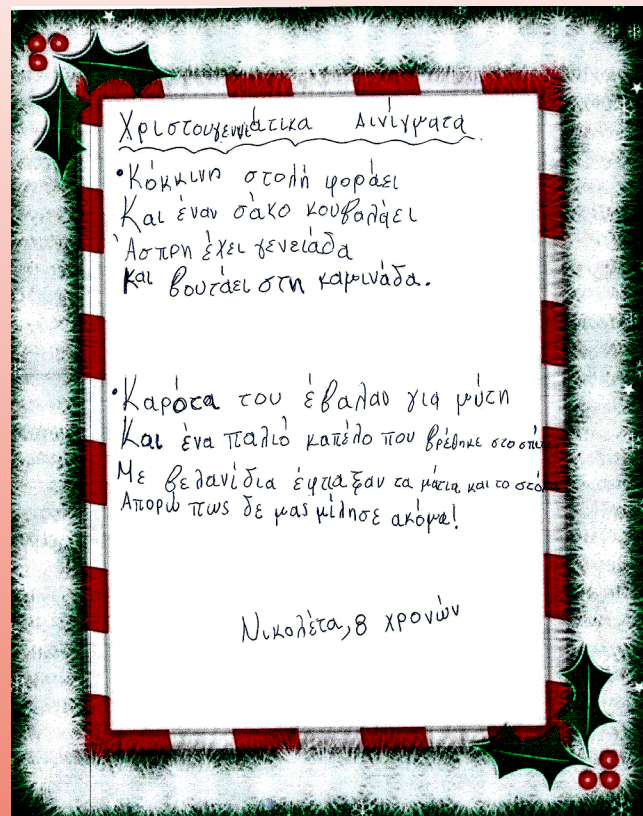 Χριστουγεννιάτικα Αινίγματα
•Κόκκινη στολή φοράει
Και έναν σάκο κουβαλάει
Άσπρη έχει γενειάδα
και βουτάει στη καμινάδα.
•Καρότα του έβαλαν για μύτη
Και ένα παλιό καπέλο που βρέθηκε στο σπίτι.
Με βελανίδια έφτιαξαν τα μάτια και το στόμα
Απορώ πως δε μας μίλησε ακόμα!
Νικολέτα, 8 χρονών